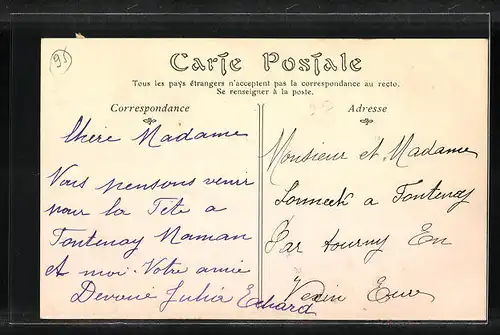 95
Carte Postale
Tous les pays étrangers n'acceptent pas la correspondance au recto.
Se renseigner à la poste.
Correspondance
Adresse
Chère Madame
Vous pensons venir
pour la Fête a
Fontenay Maman
et moi. Votre amie
Devoué Julia Echard
Monsieur et Madame
a Fontenay
Par tourny En
Vexin Eure